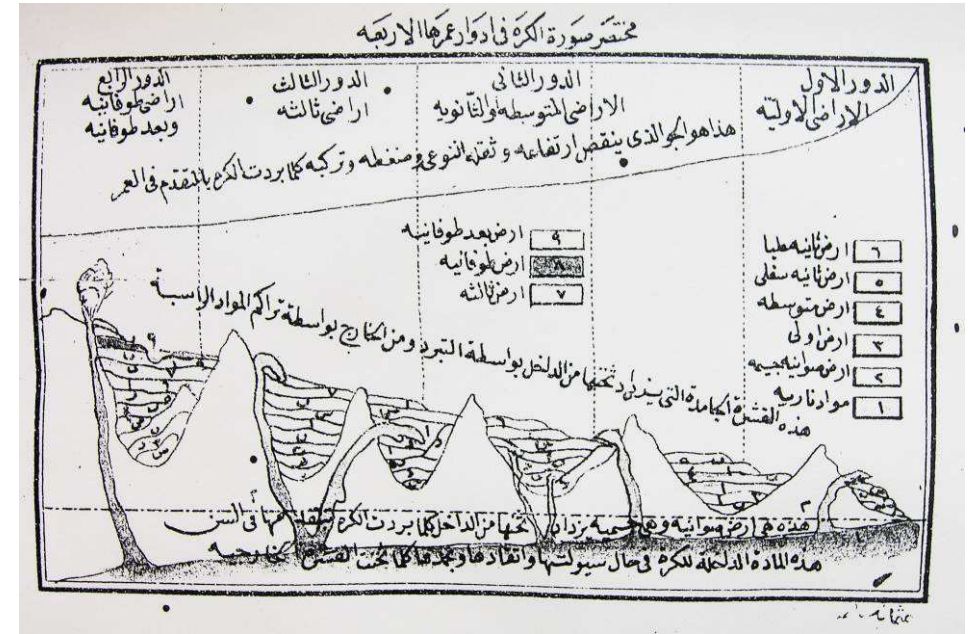 مختصر صورة الكره فى ادوار عمرها الاربعه
الدور الاول
الاراضى الاوليه
الدور الثانى
الاراضى المتوسطه والثانويه
الدور الثالث
اراضى ثالثه
الدور الرابع
اراضى طوفانيه
وبعد طوفانيه
هذا هو الجو الذى ينقص ارتفاعه وثقله النوعى وضغطه وتركبه كلما بردت الكره بالتقدم فى العمر
٦ ارض ثانيه عليا
٥ ارض ثانيه سفلى
٤ ارض متوسطه
٣ ارض اولى
٢ ارض صوانيه
١ مواد ناريه
٩ ارض بعد طوفانيه
٨ ارض طوفانيه
٧ ارض ثالثه
هذه القشرة الجامدة التى يزداد ثخنها من الداخل بواسطة التبرد ومن الخارج بواسطة تراكم المواد الراسبة
هذه هى ارض صوانيه وهى يزداد ثخنها من الداخل كلما بردت الكره فى السن
هذه المادة الداخله للكره فى حال سيولتها واتقادها وتجمدها كلما ثخنت القشرة